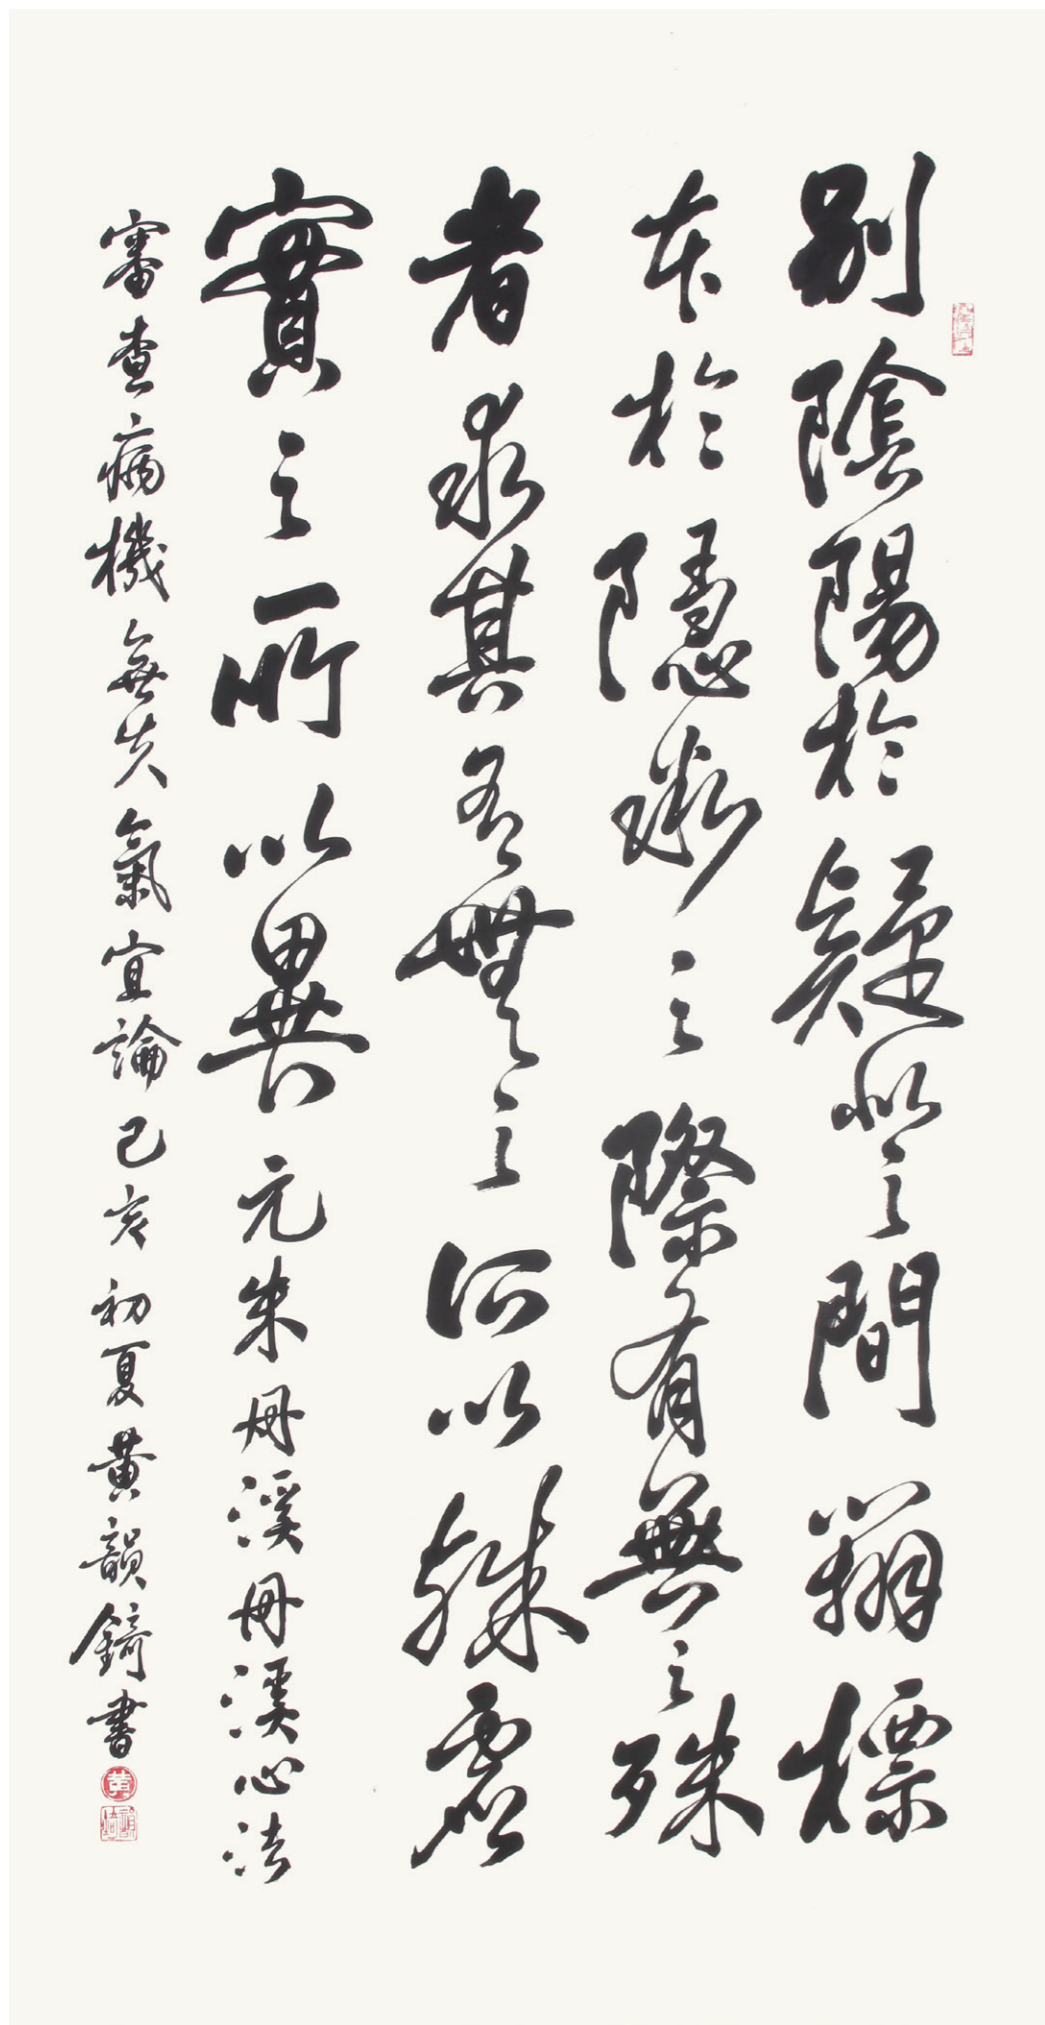 別陰陽於疑似之間辨標
本於隱微之際有無之殊
者求其有無之所以殊虛
實之所以異元朱丹溪丹溪心法
審查病機無失氣宜論己亥初夏黃韻錡書
黃